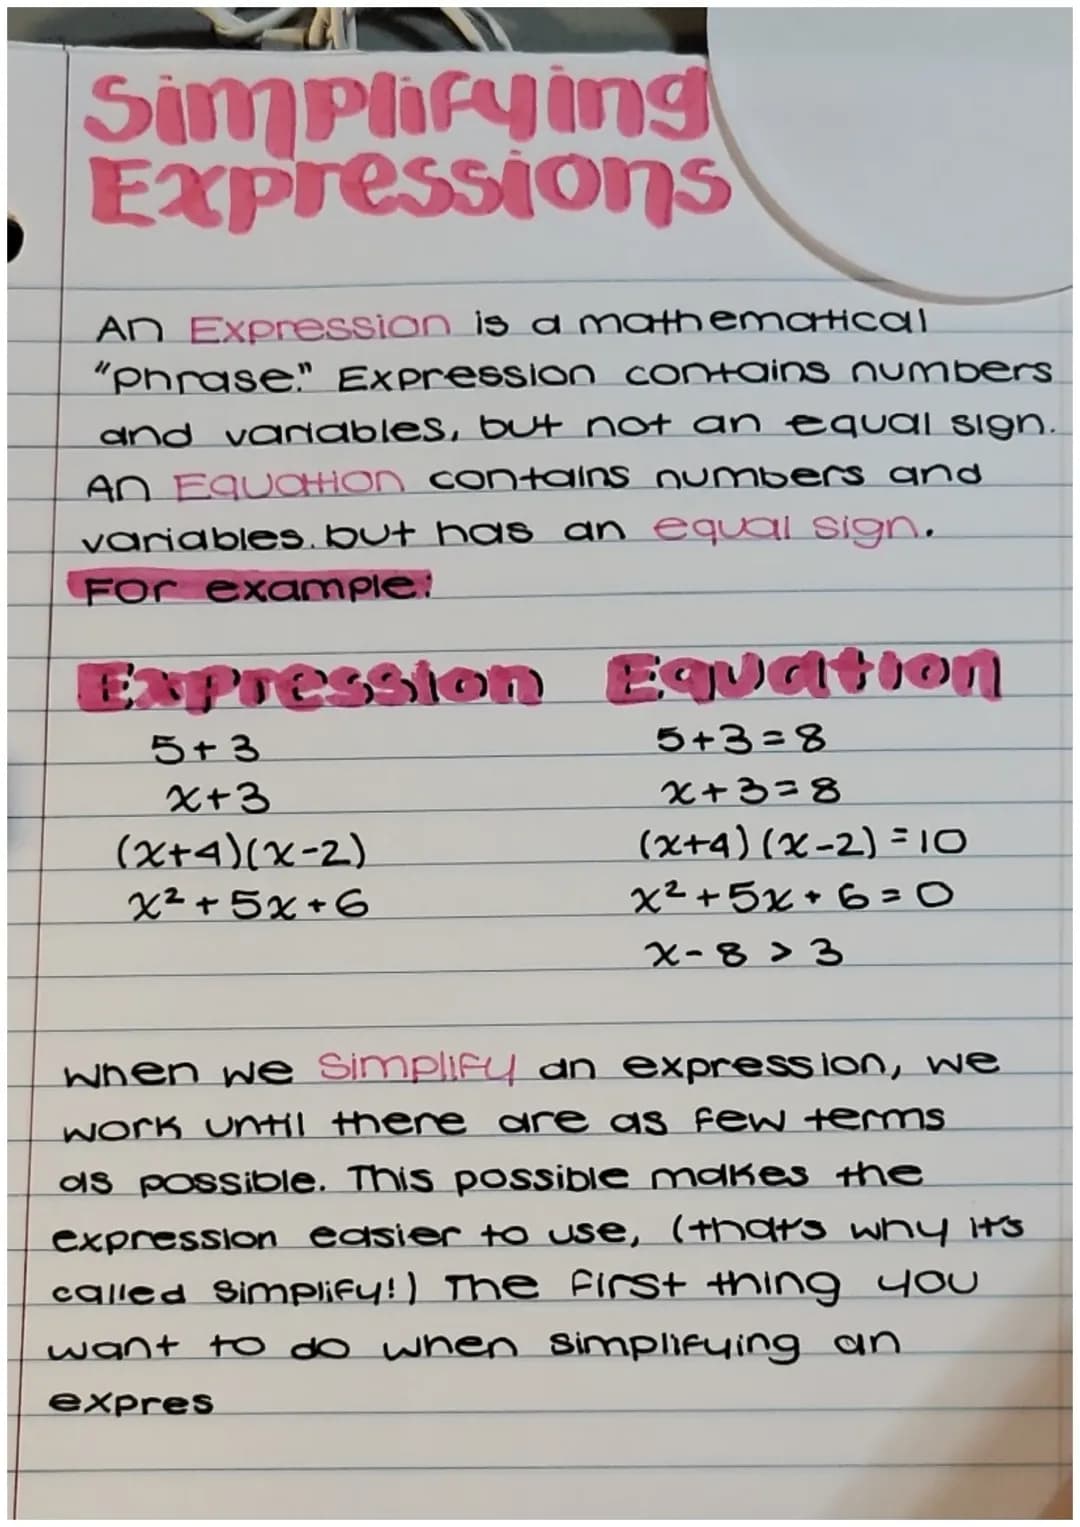 Simplifying
Expressions
An Expression is a mathematical
"phrase." Expression contains numbers
and variables, but not an equal sign.
An Equation contains numbers and
variables. but has an equal sign.
For example:
Expression Equation
5+3 5+3=8
x+3 x+3=8
(x+4)(x-2) (x+4)(x-2)=10
x²+5x+6 x²+5x+6=0
x-8 > 3
when we Simplify an expression, we
work until there are as few terms
as possible. This possible makes the
expression easier to use, (that's why it's
called simplify!) The first thing you
want to do when simplifying an
expres